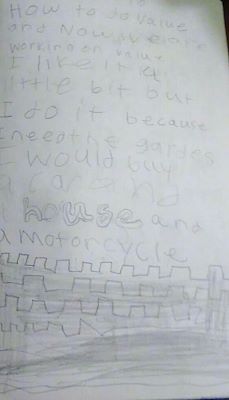 How to do value
and Now we are
working on value
I like it a
little bit but
I do it because
I need the grades
I would buy
a car and a
house and
a motorcycle